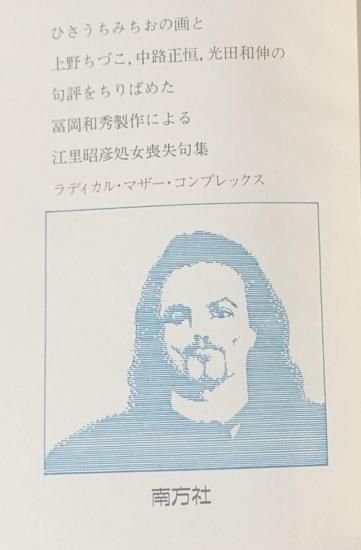 ひさうちみちおの画と
上野ちづこ,中路正恒,光田和伸の
句評をちりばめた
冨岡和秀製作による
江里昭彦処女喪失句集
ラディカル・マザー・コンプレックス
南方社